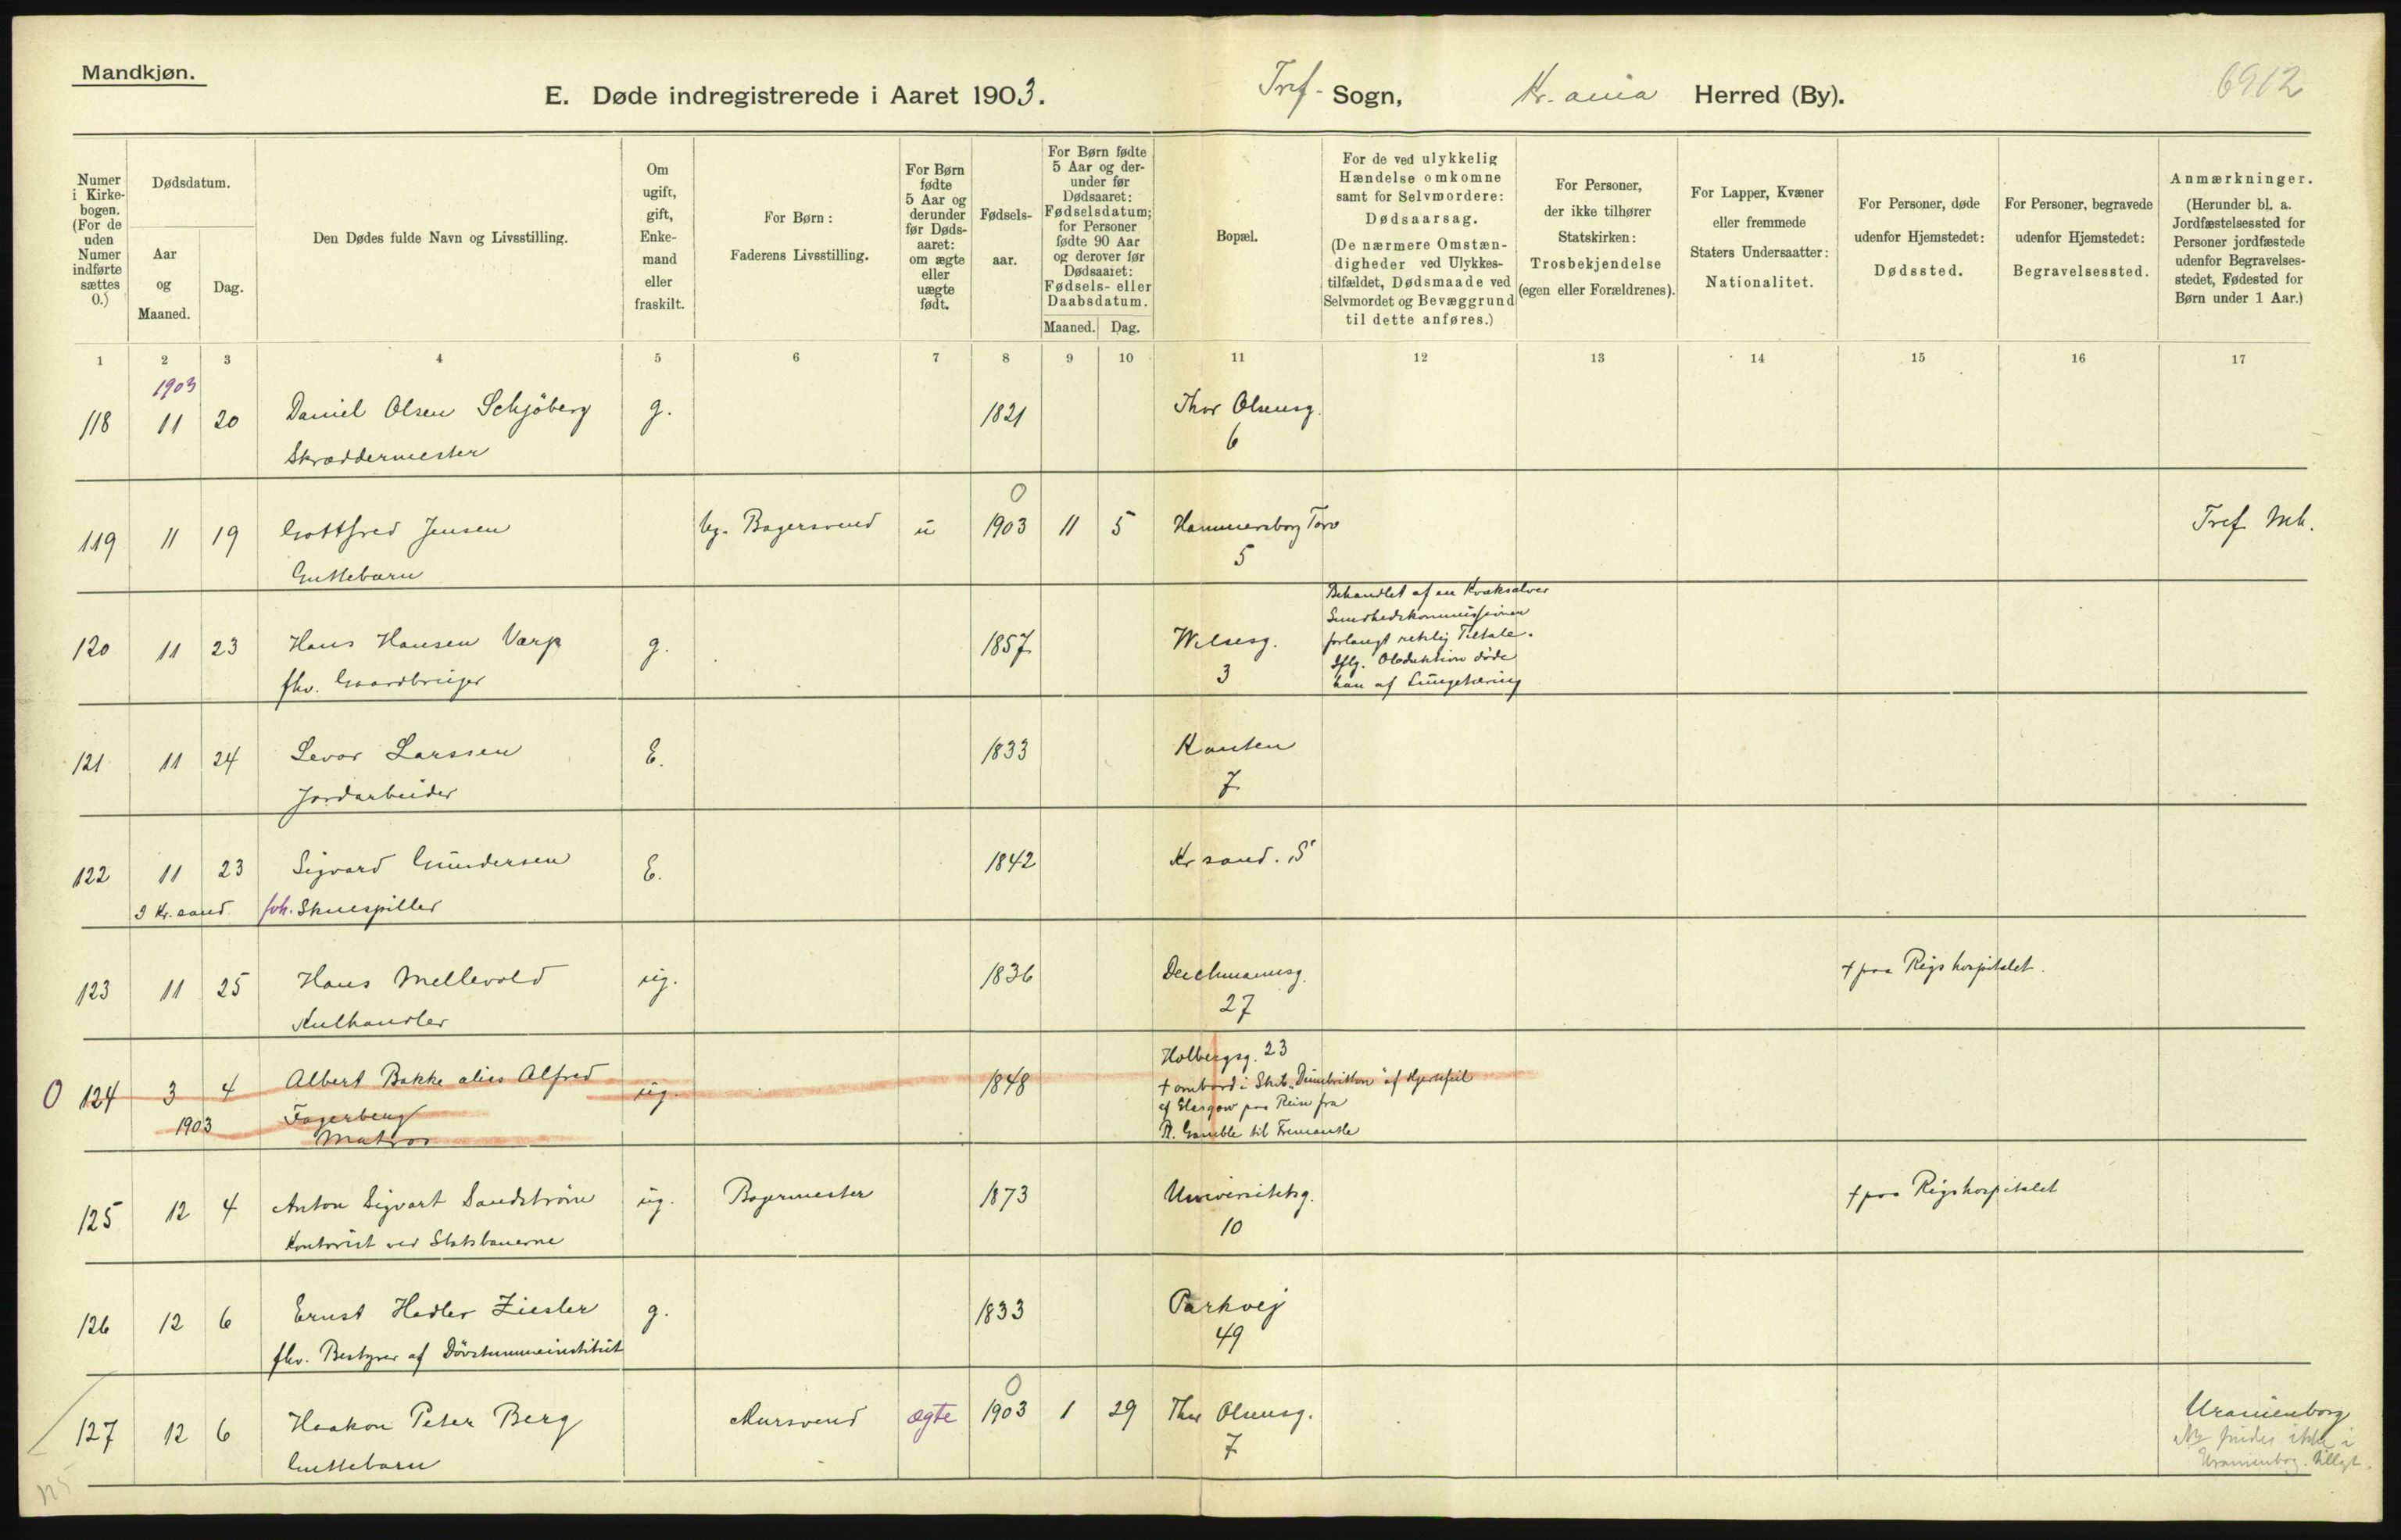 Mandkjøn.
E. Døde indregistrerede i Aaret 1903.
Tref. Sogn,
Kr.ania Herred (By).
6912
Numer i Kirkebogen. (For de uden Numer indførte sættes 0.)
Dødsdatum.
Aar og Maaned.
Dag.
Den Dødes fulde Navn og Livsstilling.
Om ugift, gift, Enkemand eller fraskilt.
For Børn:
Faderens Livsstilling.
For Børn fødte 5 Aar og derunder før Dødsaaret: om ægte eller uægte født.
Fødselsaar.
For Børn fødte 5 Aar og derunder før Dødsaaret: Fødselsdatum; for Personer fødte 90 Aar og derover før Dødsaaret: Fødsels- eller Daabsdatum.
Maaned. Dag.
Bopæl.
For de ved ulykkelig Hændelse omkomne samt for Selvmordere: Dødsaarsag.
(De nærmere Omstændigheder ved Ulykkestilfældet, Dødsmaade ved Selvmordet og Bevæggrund til dette anføres.)
For Personer, der ikke tilhører Statskirken: Trosbekjendelse (egen eller Forældrenes).
For Lapper, Kvæner eller fremmede Staters Undersaatter: Nationalitet.
For Personer, døde udenfor Hjemstedet: Dødssted.
For Personer, begravede udenfor Hjemstedet: Begravelsessted.
Anmærkninger.
(Herunder bl. a. Jordfæstelsessted for Personer jordfæstede udenfor Begravelsesstedet, Fødested for Børn under 1 Aar.)
1 2 3 4 5 6 7 8 9 10 11 12 13 14 15 16 17
1903
118 11 20 Daniel Olsen Schjöberg g. 1821 Thor Olsensg.
Skræddermester 6
0
119 11 19 Gottfred Jensen Ug. Bagersvend u 1903 11 5 Hammersborg Torv Tref Mh.
Guttebarn 5
120 11 23 Hans Hansen Varp g. 1857 Wilsesg.
fhv. Gaardbruger 3
Behandlet af en Kvaksalver
Sundhedskommissionen
forlangt retslig Tiltale.
Iflg. Obduktion døde
han af Lungetæring
121 11 24 Levor Larssen E. 1833 Kanten
Jordarbeider 7
122 11 23 Sigvard Gundersen E. 1842 Kr sand. S
I Kr. sand fvh. Skuespiller
123 11 25 Hans Mellevold ug. 1836 Deichmannsg. + paa Rigshospitalet.
Kulhandler 27
0 124 3 4 Albert Bakke alias Alfred ug. 1848 Holbergsg. 23
1903 Fagerberg
Matros
+ ombord i Skib "Dumbritton" af Hjertefeil
af Glasgow paa Reise fra
Pt. Gamble til Fremantle
125 12 4 Anton Sigvart Sandström ug. Bagermester 1873 Universitetsg. + paa Rigshospitalet
Kontorist ved Statsbanerne 10
126 12 6 Ernst Hedlev Ziesler g. 1833 Parkvej
fhv. Bestyrer af Døvstummeinstitut 49
0
127 12 6 Haakon Peter Berg Mursvend ægte 1903 1 29 Thor Olsensg. Uranienborg
Guttebarn 7
findes ikke i
Uranienborg.